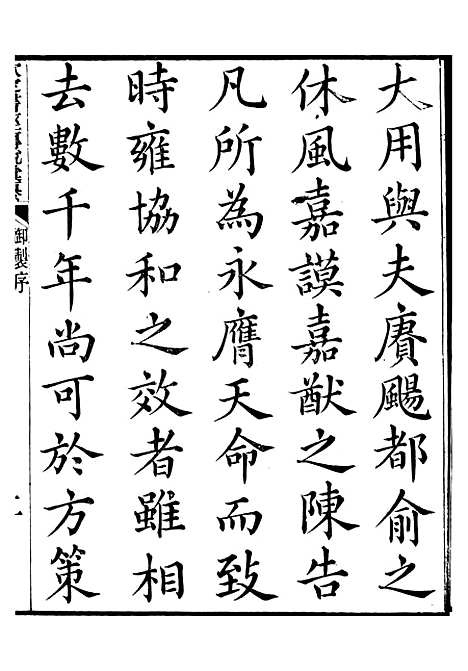 大用與夫賡颺都俞之
休風嘉謨嘉猷之陳告
凡所為永膺天命而致
時雍協和之效者雖相
去數千年尚可於方策
御製序